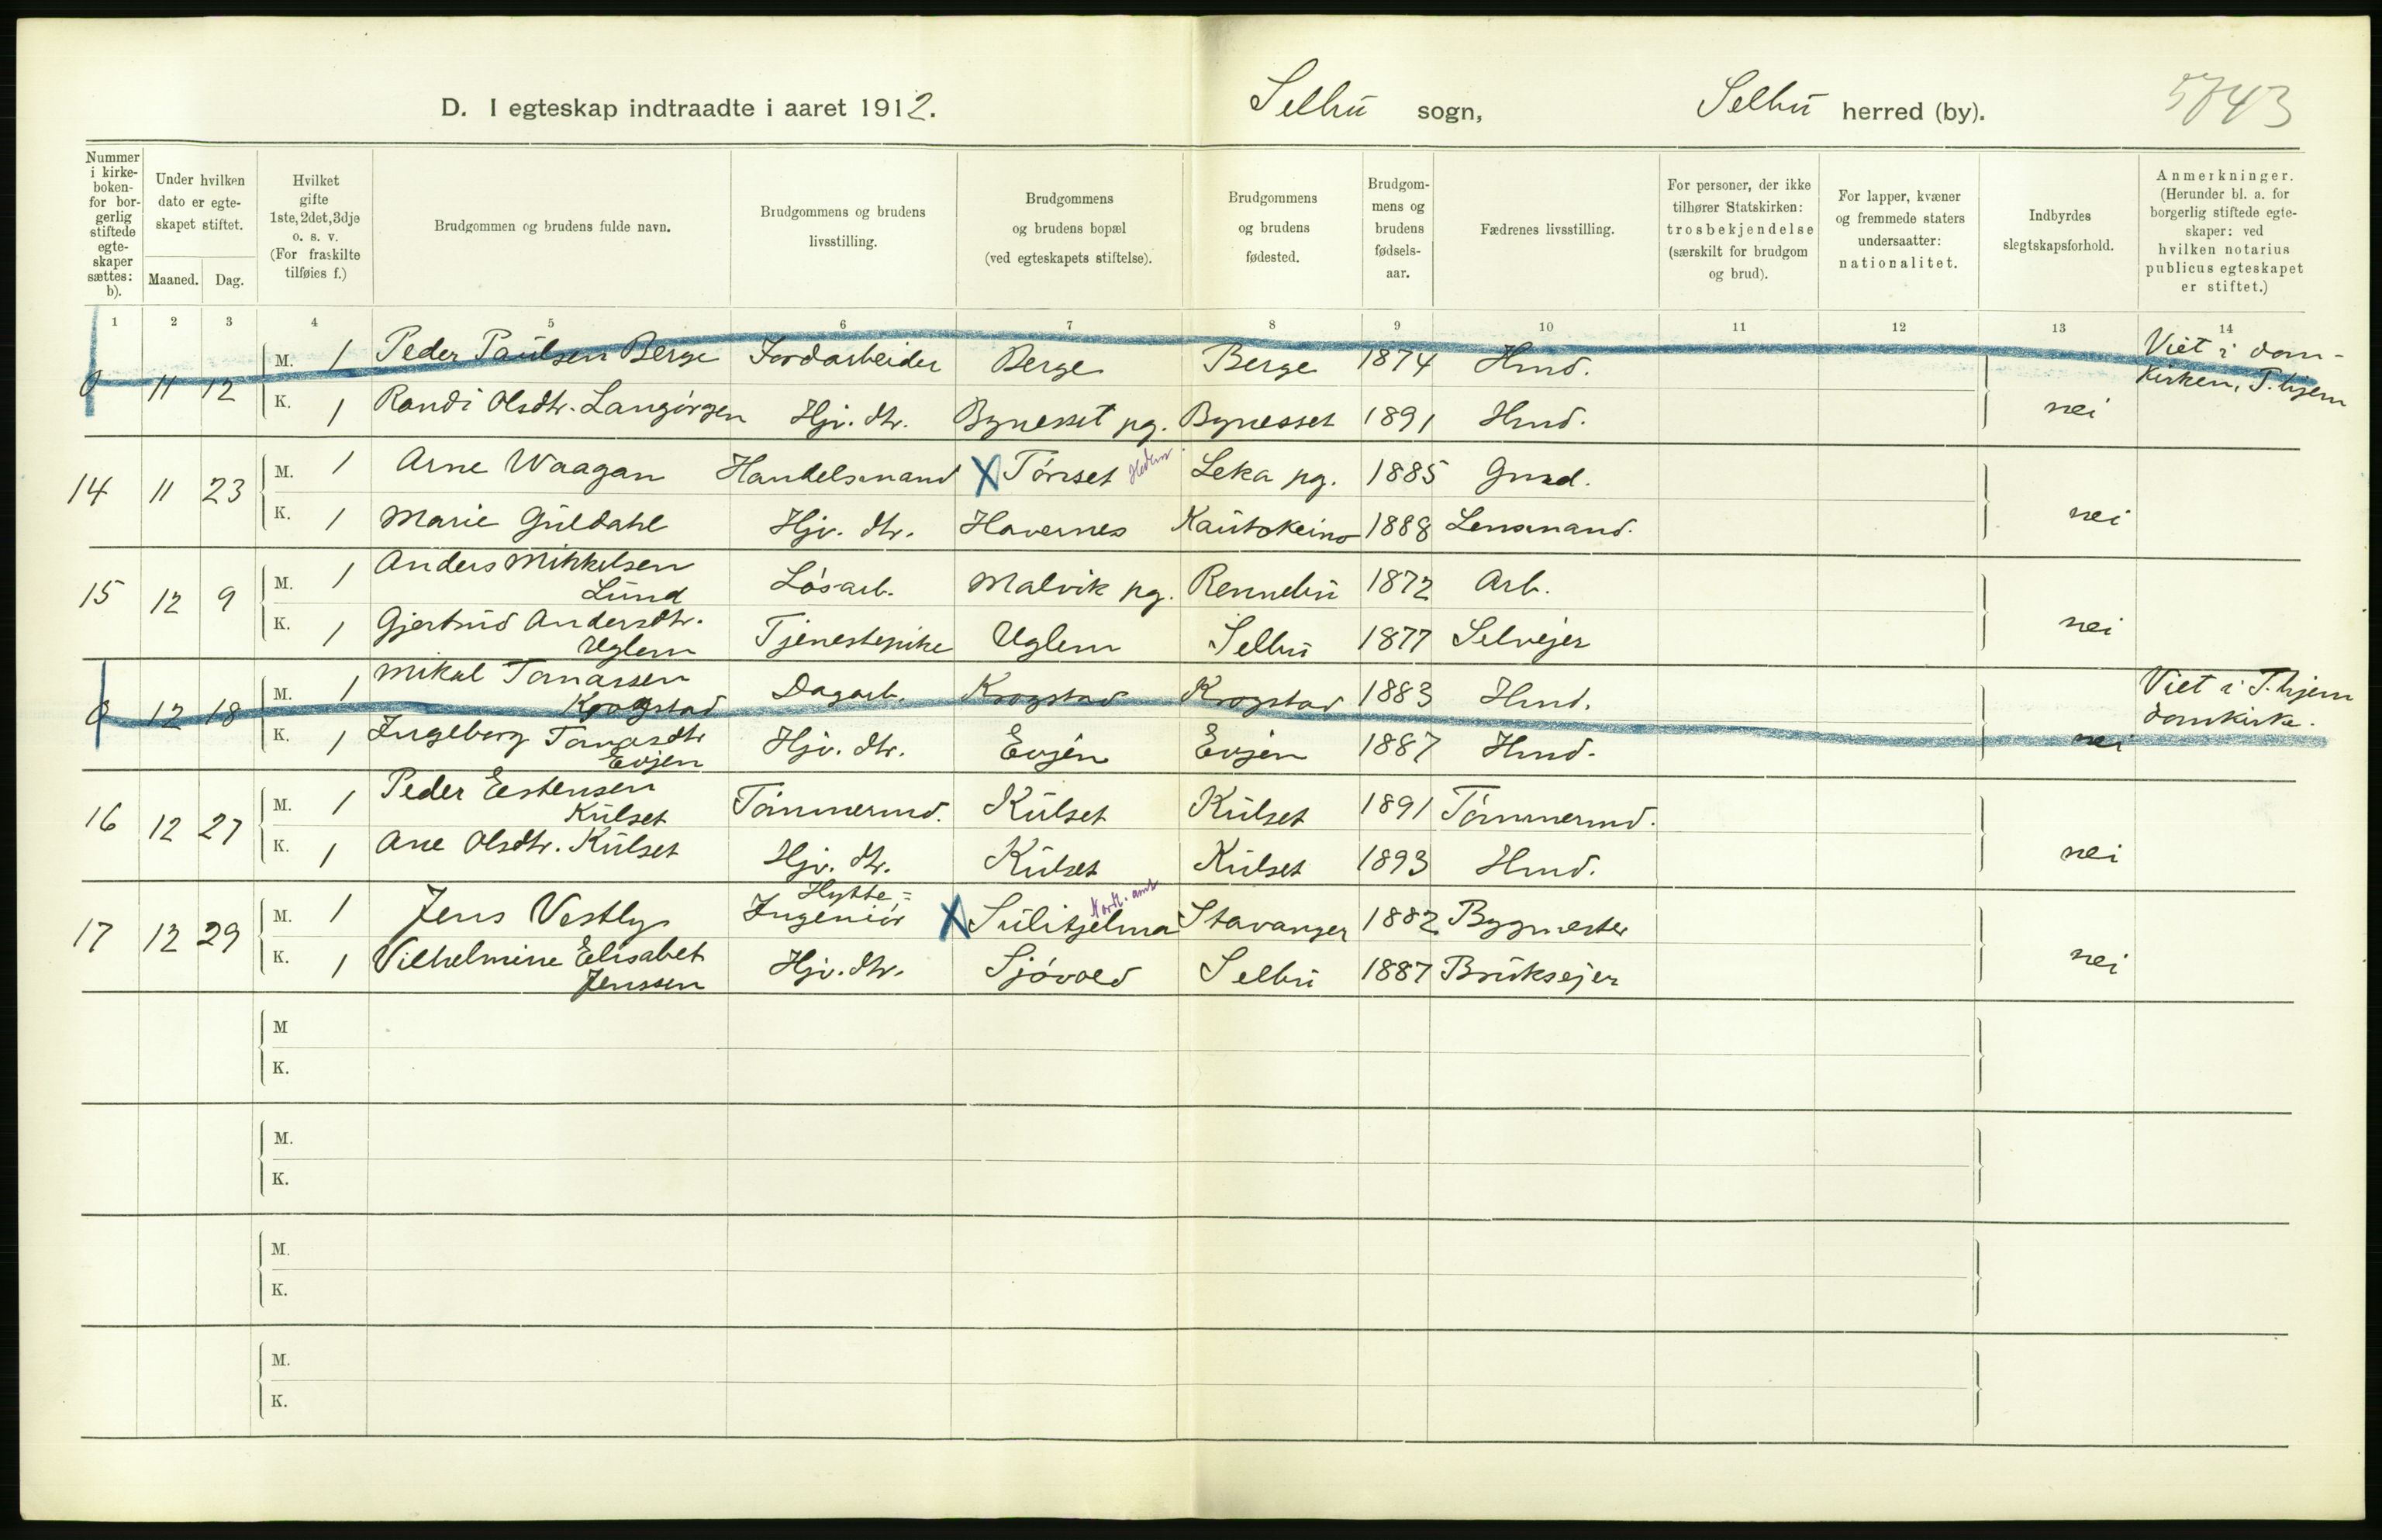 D. I egteskap indtraadte i aaret 1912. Selbu sogn, Selbu herred (by). 5743
Nummer i kirke-boken-for bor-gerlig stiftede egte-skaper sættes: b).
Under hvilken dato er egte-skapet stiftet.
Maaned. Dag.
Hvilket gifte 1ste, 2det, 3dje o. s. v. (For fraskilte tilføies f.)
Brudgommen og brudens fulde navn.
Brudgommens og brudens livsstilling.
Brudgommens og brudens bopæl (ved egteskapets stiftelse).
Brudgommens og brudens fødested.
Brudgom-mens og brudens fødsels-aar.
Fædrenes livsstilling.
For personer, der ikke tilhører Statskirken: trosbekjendelse (særskilt for brudgom og brud).
For lapper, kvæner og fremmede staters undersaatter: nationalitet.
Indbyrdes slegtskapsforhold.
Anmerkninger. (Herunder bl. a. for borgerlig stiftede egte-skaper: ved hvilken notarius publicus egteskapet er stiftet.)
1 2 3 4 5 6 7 8 9 10 11 12 13 14
0 11 12 M. 1 Peder Paulsen Berge Jordarbeider Berge Berge 1874 Hmd. Viet i dom-kirken, T.hjem
K. 1 Randi Olsdtr. Langørgen Hjv. dtr. Bynesset pg. Bynesset 1891 Hmd. nei
14 11 23 M. 1 Arne Waagan Handelsmand X Tönset Hedm. Leka pg. 1885 Gmd.
K. 1 Marie Güldahl Hjv. dtr. Havernes Kautokeino 1888 Lensmand. nei
15 12 9 M. 1 Anders Mikkelsen Lund Løsarb. Malvik pg. Rennebu 1872 Arb.
K. 1 Gjertrud Andersdtr. Uglem Tjenestepike Uglem Selbu 1877 Selvejer nei
0 12 18 M. 1 Mikal Tomassen Kragstad Dagarb. Kragstad Kragstad 1883 Hmd. Viet i T.hjem domkirke.
K. 1 Ingeborg Tomasdtr Evjen Hjv. dtr. Evjen Evjen 1887 Hmd. nei
16 12 27 M. 1 Peder Eestensen Kulset Tømmermd. Kulset Kulset 1891 Tømmermd.
K. 1 Ane Olsdtr. Kulset Hjv. dtr. Kulset Kulset 1893 Hmd. nei
17 12 29 M. 1 Jens Vestly Hytte-Ingeniør X Sulitjelma Nordl. amt Stavanger 1882 Bygmester
K. 1 Vilhelmine Elisabet Jenssen Hjv. dtr. Sjøvold Selbu 1887 Bruksejer nei
M
K.
M.
K.
M.
K.
M.
K.